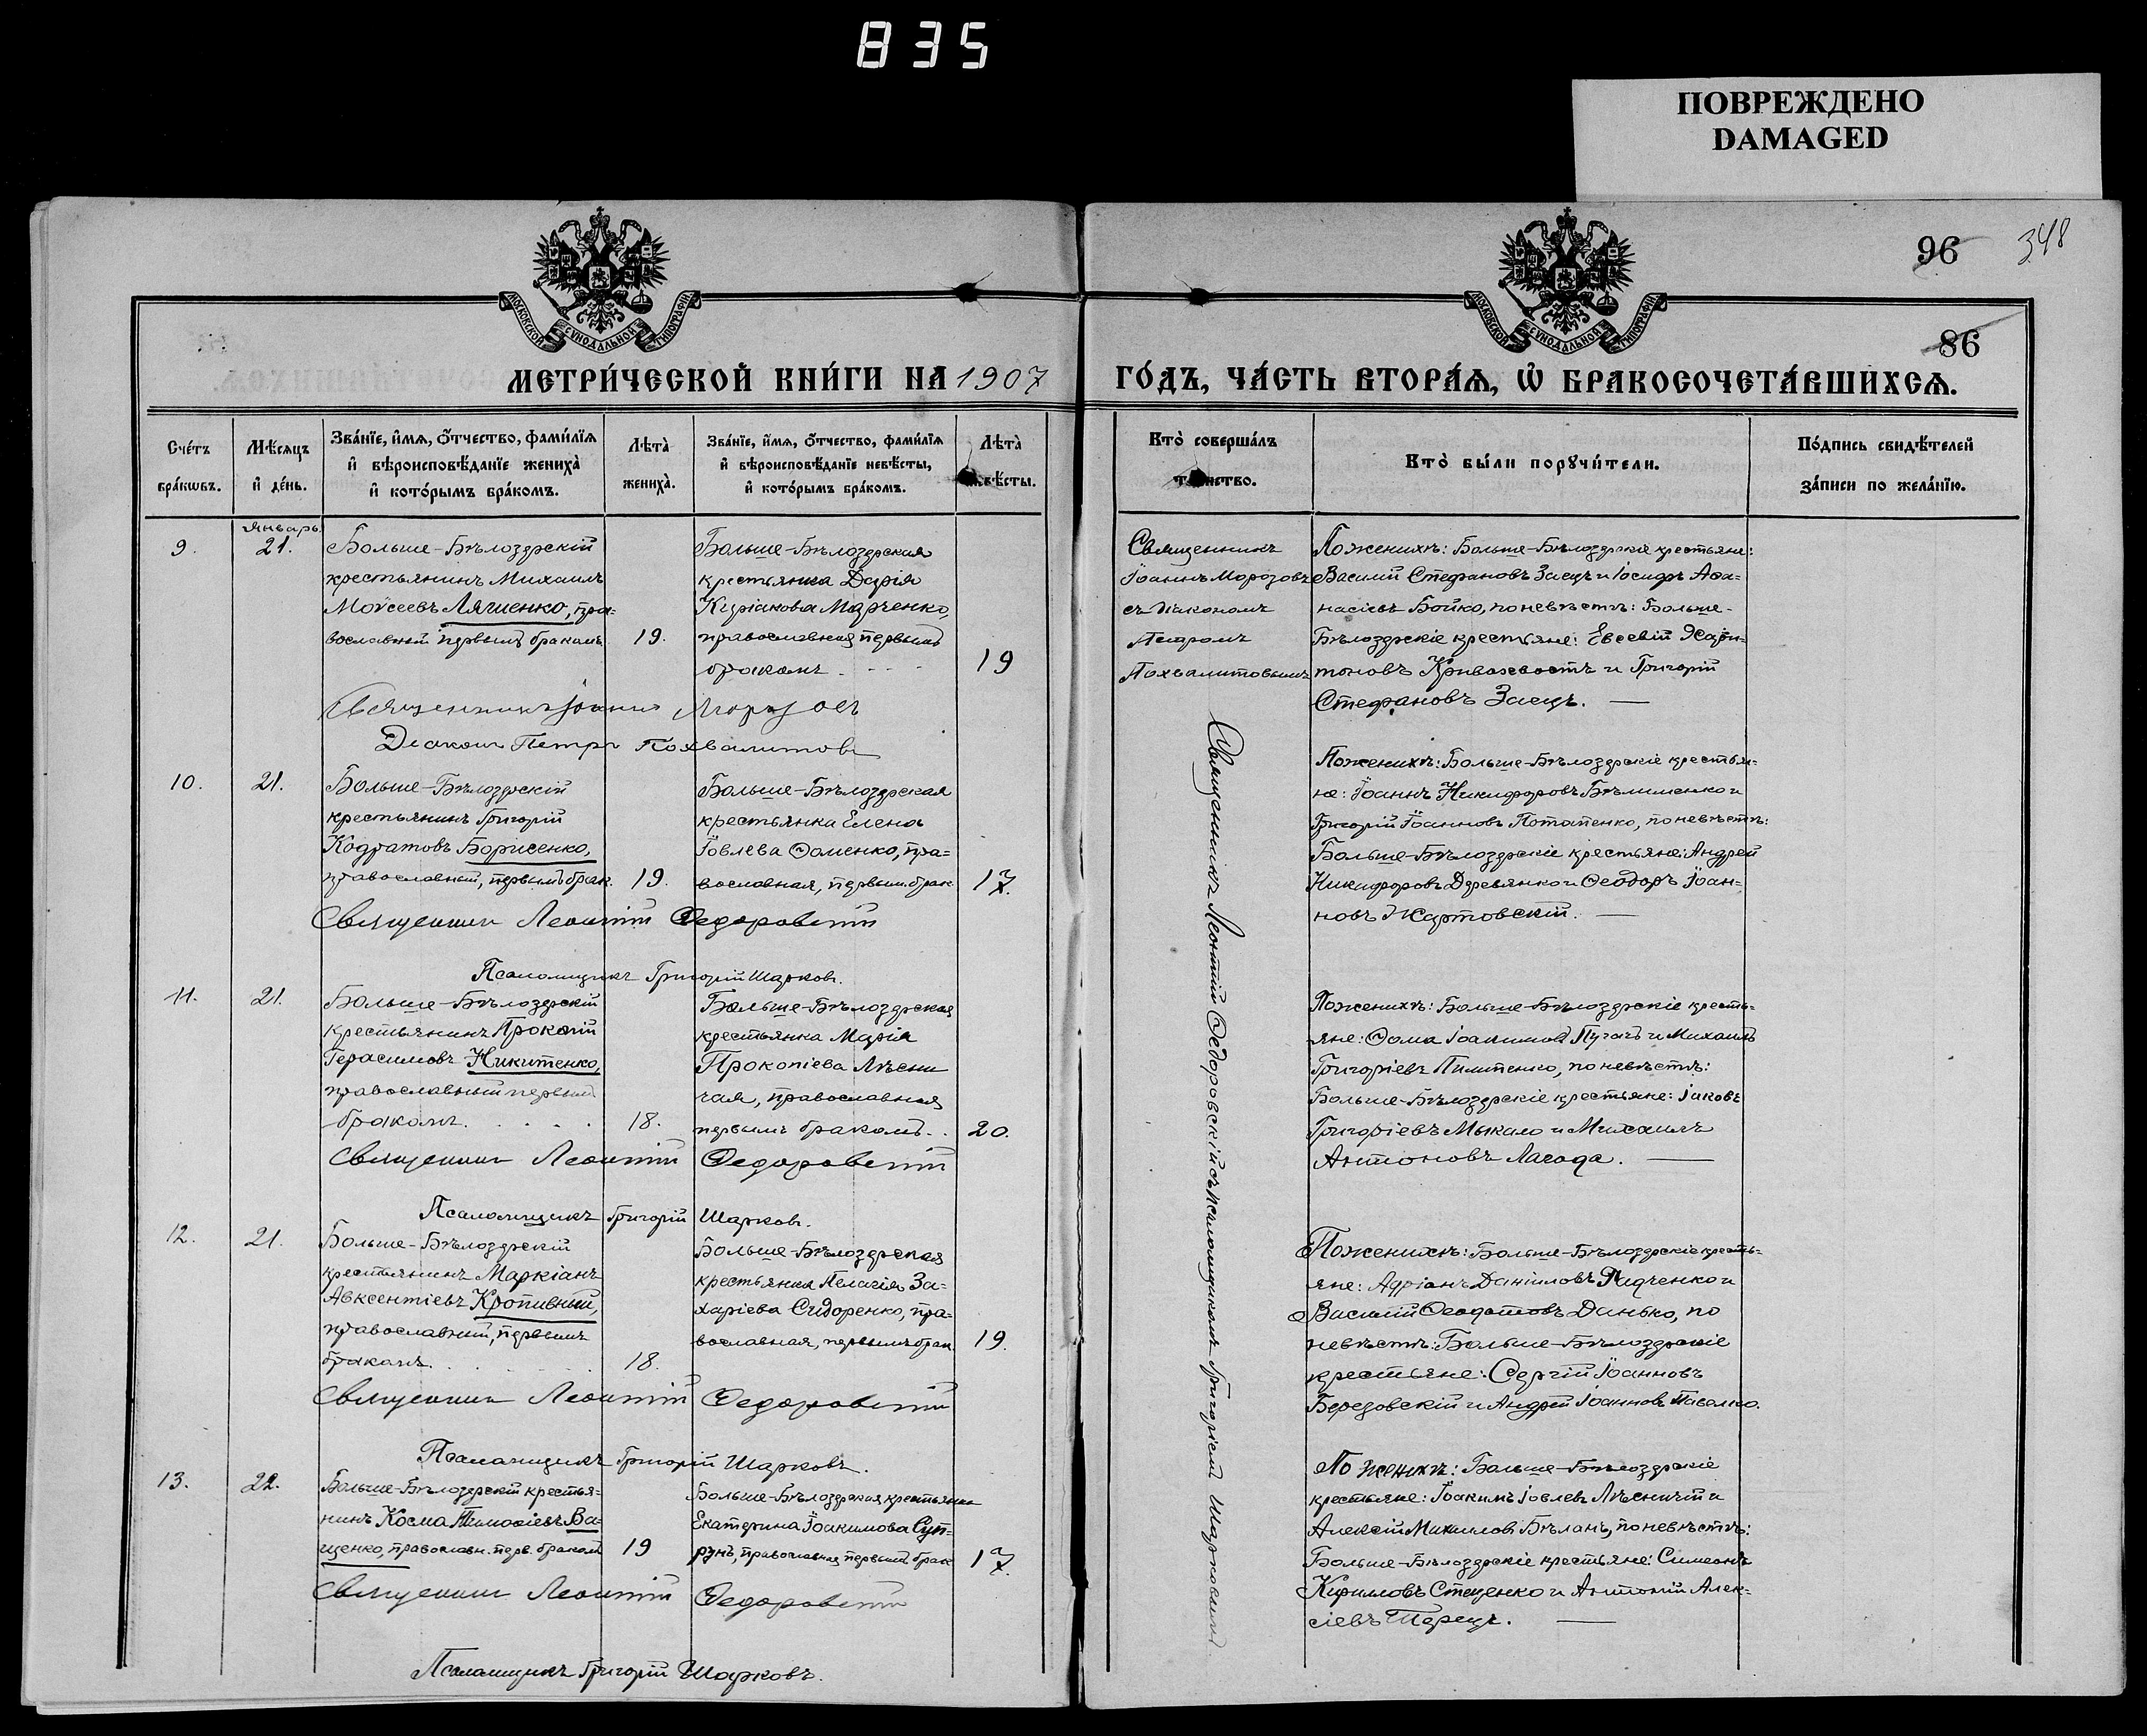 835
ПОВРЕЖДЕНО
DAMAGED
96
348
86
МОСКОВСКОЙ СѴНОДАЛЬНОЙ ТИПОГРАФІИ
МОСКОВСКОЙ СѴНОДАЛЬНОЙ ТИПОГРАФІИ
МЕТРИ́ЧЕСКОЙ КНИ́ГИ НА 1907
ГО́ДЪ, ЧА́СТЬ ВТОРА́Ѧ, Ѽ БРАКОСОЧЕТА́ВШИХСѦ.
Сче́тъ
бра́кѡвъ.
Мѣ́сяцъ
и҆ де́нь.
Зва́нїе, и҆́мѧ, ѻ҆́тчество, фами́лїѧ
и҆ вѣроисповѣ́данїе жениха̀
и҆ кото́рымъ бра́комъ.
Лѣта̀
жениха̀.
Зва́нїе, и҆́мѧ, ѻ҆́тчество, фами́лїѧ
и҆ вѣроисповѣ́данїе невѣ́сты,
и҆ кото́рымъ бра́комъ.
Лѣта̀
невѣ́сты.
Кто̀ соверша́лъ
таинство.
Кто̀ бы́ли порꙋчи́тели.
По́дпись свидѣ́телей
за́писи по жела́нїю.
9.
Январь.
21.
Больше-Бѣлозерскій
крестьянинъ Михаилъ
Моѵсеевъ Лягиенко, пра-
вославный первымъ бракомъ
19.
Больше-Бѣлозерская
крестьянка Дарія
Киріакова Марченко,
православная первымъ
бракомъ
19
Священникъ
Іоаннъ Морозовъ
съ діакономъ
Петромъ
Похвалитовымъ
По женихѣ: Больше-Бѣлозерскіе крестьяне:
Василій Стефановъ Заецъ и Іосифъ Аѳа-
насіевъ Бойко, по невѣстѣ: Больше-
Бѣлозерскіе крестьяне: Евсевій Хари-
тоновъ Кривохвостъ и Григорій
Стефановъ Заецъ.
Священникъ Іоаннъ Морозовъ
Діаконъ Петръ Похвалитовъ
10.
21.
Больше-Бѣлозерскій
крестьянинъ Григорій
Кодратовъ Борисенко,
православный, первымъ брак.
19.
Больше-Бѣлозерская
крестьянка Елена
Іовлева Ѳоменко, пра-
вославная, первым. брак.
17.
По женихѣ: Больше-Бѣлозерскіе крестья-
не: Іоаннъ Никифоровъ Бѣлименко и
Григорій Іоанновъ Потапенко, по невѣстѣ:
Больше-Бѣлозерскіе крестьяне: Андрей
Никифоровъ Деревянко и Ѳеодоръ Іоан-
новъ Жартовскій.
Священникъ Леонтій Ѳедоровскій
Псаломщикъ Григорій Шарковъ.
Священникъ Леонтій Ѳедоровскій съ псаломщикомъ Григоріемъ Шарковымъ
11.
21.
Больше-Бѣлозерскій
крестьянинъ Прокопій
Герасимовъ Никитенко,
православный первымъ
бракомъ.
18.
Больше-Бѣлозерская
крестьянка Марія
Прокопіева Лѣсни
чая, православная
первымъ бракомъ.
20.
По женихѣ: Больше-Бѣлозерскіе кресть-
яне: Ѳома Іоакимовъ Пугачъ и Михаилъ
Григоріевъ Пилипенко, по невѣстѣ:
Больше-Бѣлозерскіе крестьяне: Іаковъ
Григоріевъ Мыкало и Михаилъ
Антоновъ Лагода.
Священникъ Леонтій Ѳедоровскій
Псаломщикъ Григорій Шарковъ.
12.
21.
Больше-Бѣлозерскій
крестьянинъ Маркіанъ
Авксентіевъ Кропивный,
православный, первымъ
бракомъ.
18.
Больше-Бѣлозерская
крестьянка Пелагія За-
харіева Сидоренко, пра-
вославная, первымъ брак.
19.
По женихѣ: Больше-Бѣлозерскіе кресть-
яне: Адріанъ Даніиловъ Рядченко и
Василій Ѳеодотовъ Данько, по
невѣстѣ: Больше-Бѣлозерскіе
крестьяне: Сергій Іоанновъ
Березовскій и Андрей Іоанновъ Павелко.
Священникъ Леонтій Ѳедоровскій
Псаломщикъ Григорій Шарковъ.
13.
22.
Больше-Бѣлозерскій крестья-
нинъ Косма Тимоѳіевъ Ва-
щенко, православн. перв. бракомъ
19
Больше-Бѣлозерская крестьянка
Екатерина Іоакимова Суп-
рунъ, православная первымъ брак.
17.
По женихѣ: Больше-Бѣлозерскіе
крестьяне: Іоакимъ Іовлевъ Лѣсничій и
Алексій Михаиловъ Бѣланъ, по невѣстѣ:
Больше-Бѣлозерскіе крестьяне: Симеонъ
Кирилловъ Стеценко и Антоній Алек-
сіевъ Шерецъ.
Священникъ Леонтій Ѳедоровскій
Псаломщикъ Григорій Шарковъ.